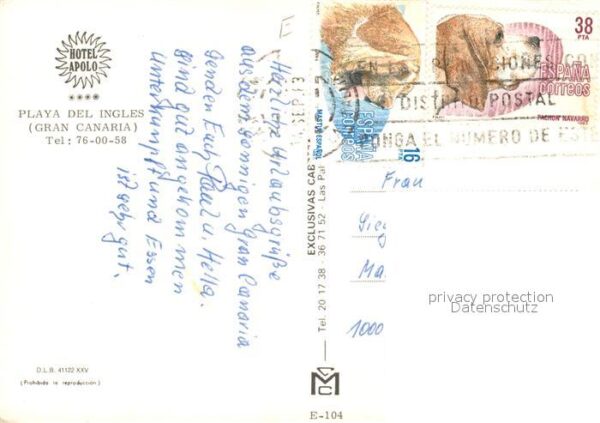 HOTEL
APOLO
PLAYA DEL INGLES
(GRAN CANARIA)
Tel: 76-00-58
Herzliche Urlaubsgrüße
aus dem sonnigen Gran Canaria
senden Euch Paul u. Hella.
Sind gut angekommen
Unterkunft und Essen
ist sehr gut.
D.L.B. 41122 XXV
(Prohibida la reproducción)
EXCLUSIVAS
Tel. 20 17 38 - 36 71 52 - Las Pal
E-104
MASTIN ESPAÑOL
ESPAÑA
CORREOS
16
PTA
38
PTA
ESPAÑA
correos
PACHON NAVARRO
DISTRITO POSTAL
PONGA EL NUMERO DE ESTE
SEP
Frau
Ma
1000
privacy protection
Datenschutz